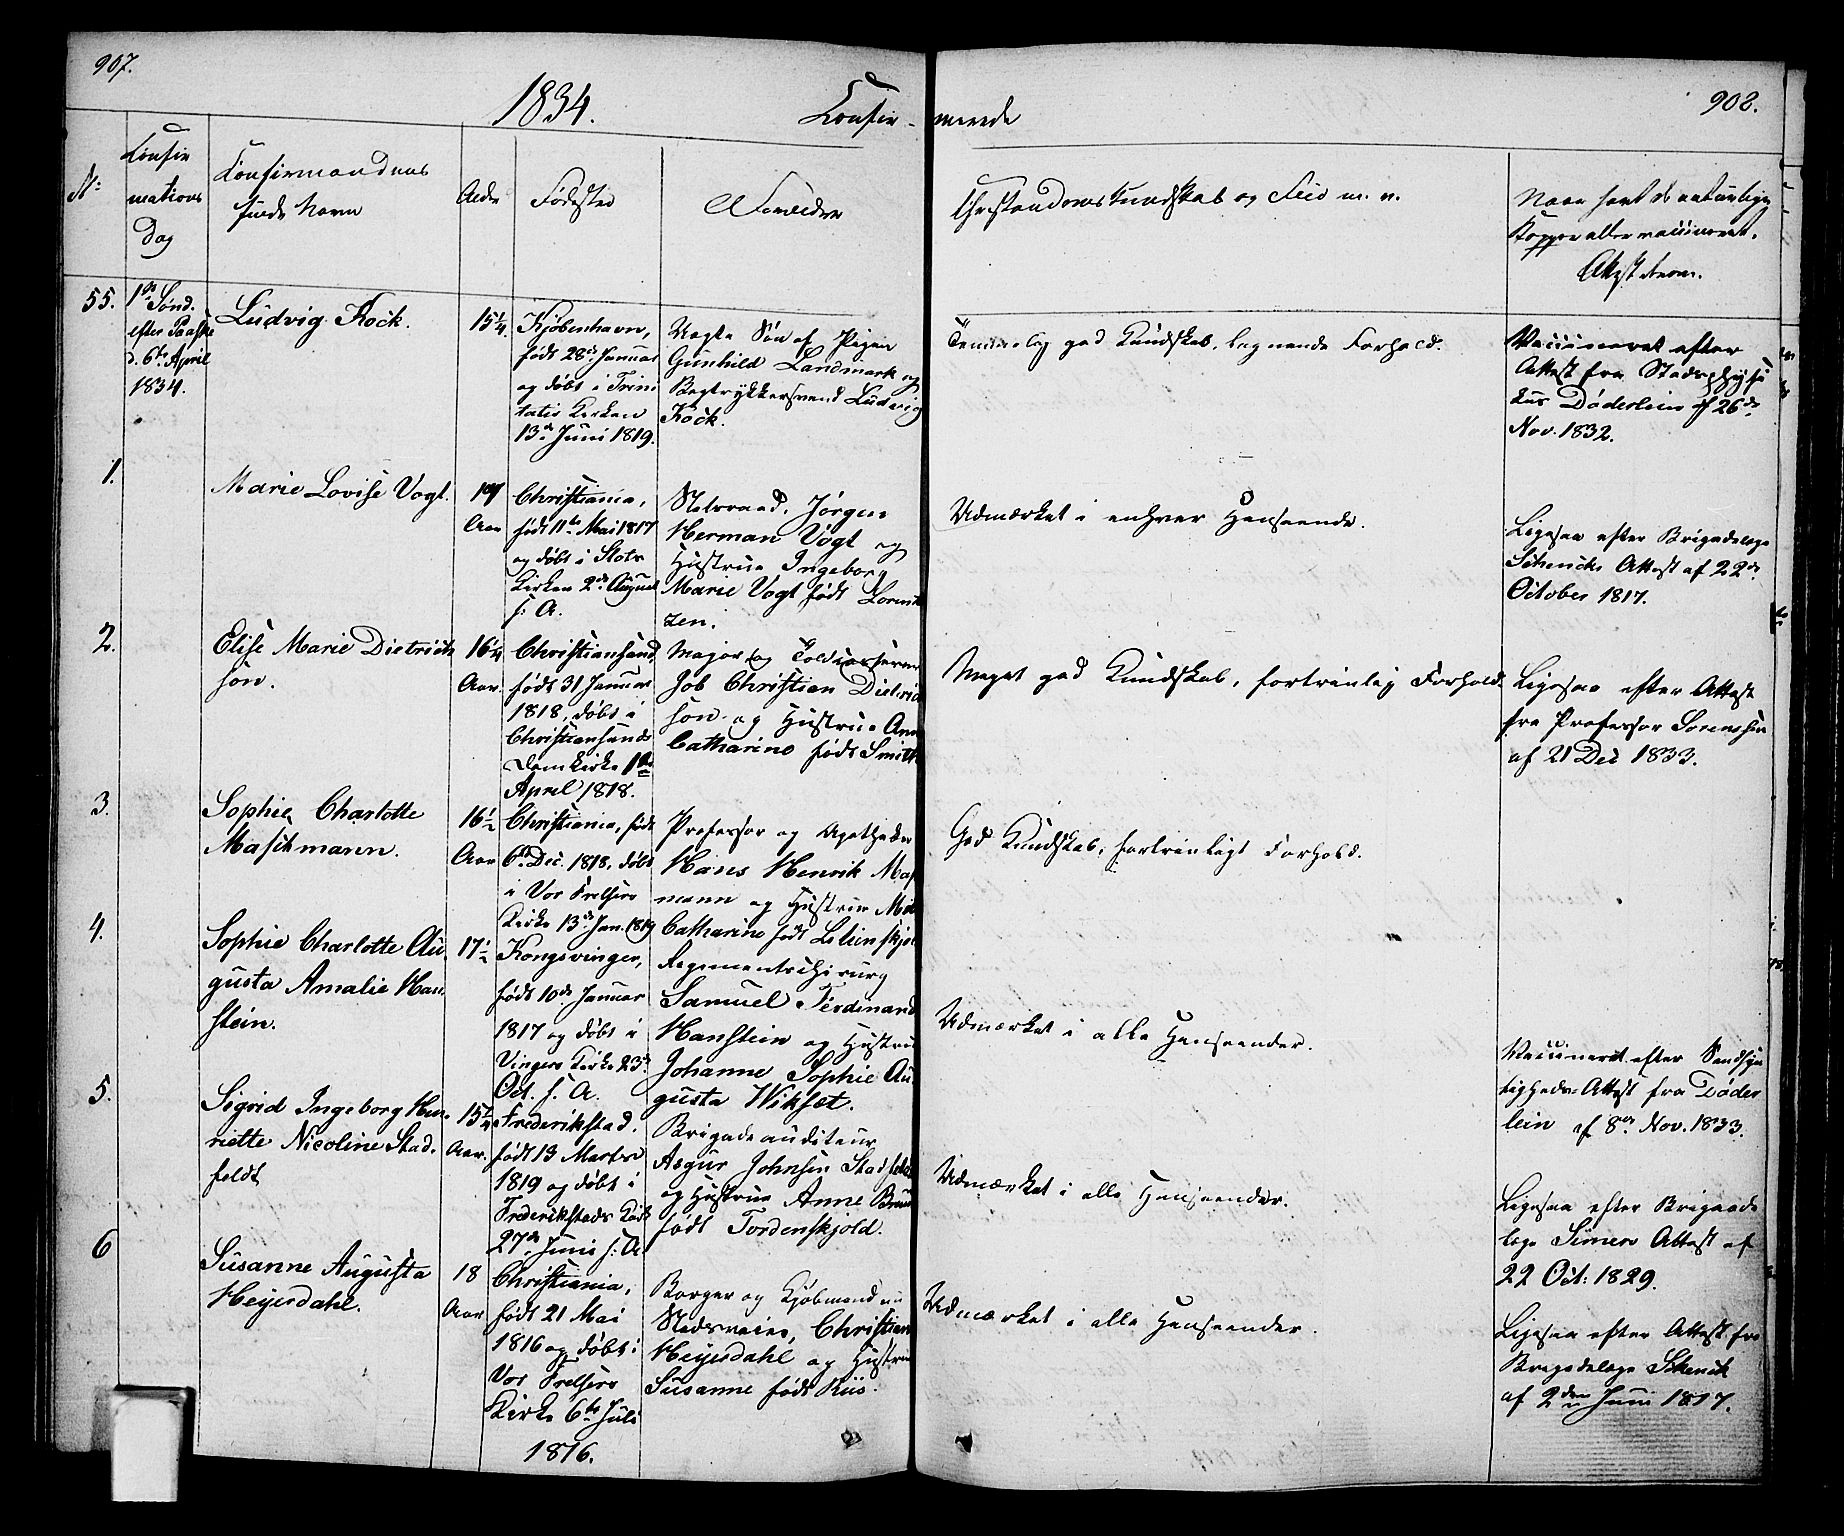 907.
1834.
Confir-
merede
908.
N:
Confir
mations
Dag
Confirmandens
fulde Navn
Alder
Fødested
Forældre
Christendoms Kundskab og Flid m. v.
Naar havt de naturlige
Kopper eller vaccineret.
Attest derom.
55.
1ste Sønd.
efter Paaske
d. 6te April
1834.
Ludvig Kock.
15 1/4
Kjøbenhavn,
født 28de Januar
og døbt i Trini
tatis Kirken
13de Juni 1819.
Uægte Søn af Pigen
Gunhild Landmark og
Bogtrykkersvend Ludvig
Kock.
Temmelig god Kundskab, lignende Forhold.
Vaccineret efter
Attest fra Stadsphysi
kus Døderlein af 26de
Nov. 1832.
1.
Marie Lovise Vogt.
Aar
Christiania,
født 11te Mai 1817
og døbt i Slots
Kirken 2de August
s: A.
Statsraad, Jørgen
Herman Vogt og
Hustrue Ingeborg
Marie Vogt født Lorent
zen.
Udmærket i enhver Henseende.
Ligesaa efter Brigadelæge
Schencks Attest af 22de
October 1817.
2.
Elise Marie Dietrich
son.
16 1/4
Aar.
Christiansand,
født 31 Januar
1818, døbt i
Christiansands
Domkirke 1te
April 1818.
Major og Toldcasserer
Job Christian Dietrich
son og Hustrue Ann
Catharine født Smith
Meget god Kundskab, fortrinlig Forhold.
Ligesaa efter Attest
fra Professor Sørenssen
af 21 Dec 1833.
3.
Sophie Charlotte
Maschmann.
16 1/2
Aar
Christiania, født
6te Dec. 1818, døbt
i Vor Frelsers
Kirke 13de Jan. 1819
Professor og Apotheker
Hans Henrik Mas
mann og Hustrue
Catharine født Lilienskjol
God Kundskab, fortrinligt Forhold.
4.
Sophie Charlotte Au
gusta Amalie Han
stein.
17 1/2
Kongsvinger,
født 10de Januar
1817 og døbt i
Vingers Kirke 23de
Oct. s. A.
Regimentschirurg
Samuel Ferdinand
Hanstein og Hustrue
Johanne Sophie Au
gusta Wikset.
Udmærket i alle Henseender.
Vaccineret efter Sandsyn
ligheds-Attest fra Døder
lein af 8de Nov. 1833.
5.
Sigrid Ingeborg Hen
riette Nicoline Stad
feldt
15 1/4
Aar.
Frederikstad.
født 13 Marts
1819 og døbt i
Frederikstads Kirke
27de Junis s: A.
Brigadeauditeur
Asgur Johnsen Stadfeldt
og Hustrue Anne
født Tordenskjold.
Udmærket i alle Henseender.
Ligesaa efter Brigade
læge Simers Attest af
22 Oct: 1829.
6
Susanne Augusta
Heyerdahl.
18
Aar
Christiania,
født 21 Mai
1816 og døbt i
Vor Frelsers
Kirke 6te Juli
1816.
Borger og Kjøbmand
Christian
Heyerdahl og Hustrue
Susanne født Riis.
Udmærket i alle Henseender.
Ligesaa efter Attest fra
Brigadelæge Schenck
af 2den Juni 1817.